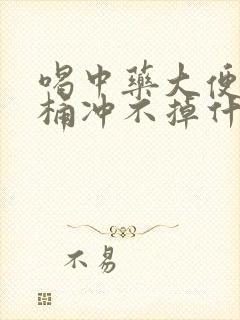 喝中藥大便
桶冲不掉什
不易